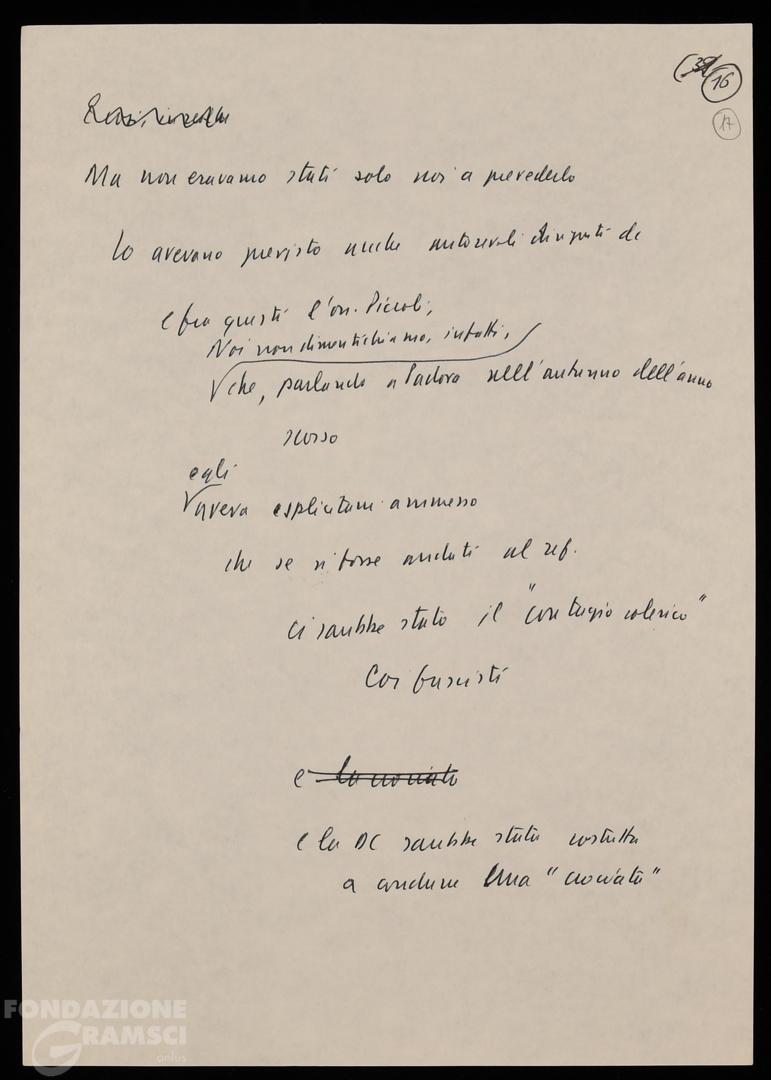 16
17
Ma non eravamo stati solo noi a prevederlo
lo avevano previsto anche autorevoli dirigenti dc
e fra questi l'on. Piccoli,
Noi non dimentichiamo, infatti,
che, parlando a Padova nell'autunno dell'anno
scorso
egli
aveva esplicitam ammesso
che se si fosse andati al ref.
ci sarebbe stato il "contagio colerico"
coi fascisti
e la crociata
e la DC sarebbe stata costretta
a condurre una "crociata"
FONDAZIONE
GRAMSCI
onlus